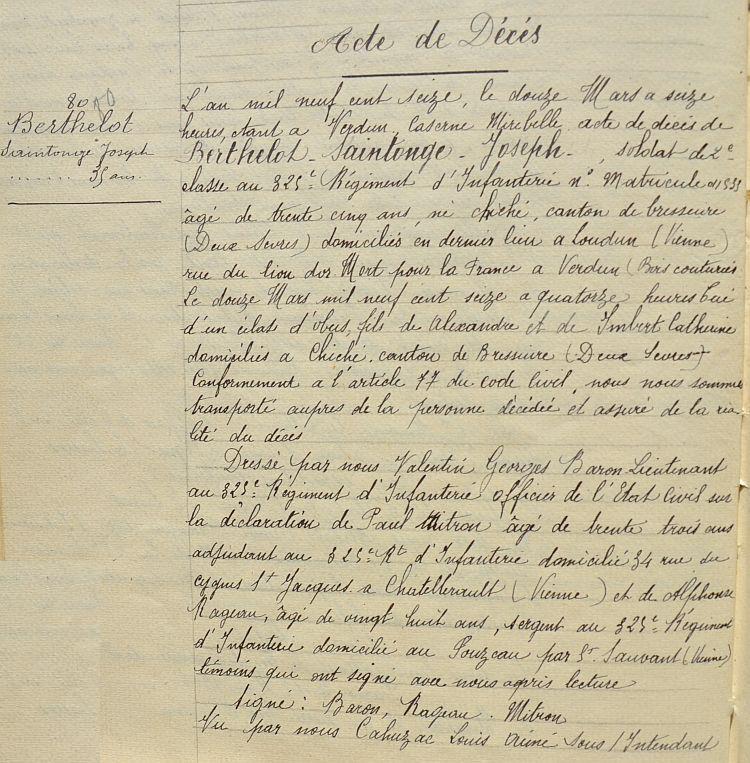 Acte de Décès
80
Berthelot
Saintonge Joseph
35 ans
L'an mil neuf cent seize, le douze Mars a seize
heures, etant a Verdun, Caserne Miribelle, acte de décès de
Berthelot - Saintonge - Joseph - , soldat de 2e
classe au 325e Régiment d'Infanterie n° Matricule
âgé de trente cinq ans, né chiché, canton de bressuire
(Deux Sevres) domiciliés en dernier lieu a loudun (Vienne)
rue du lion d'or Mort pour la France a Verdun (Bois couturies
Le douze Mars mil neuf cent seize a quatorze heures tué
d'un éclat d'obus, fils de Alexandre et de Imbert Catherine
domiciliés a Chiché, canton de Bressuire (Deux Sevres)
Conformement a l'article 77 du code Civil, nous nous sommes
transporté aupres de la personne décédée et assuré de la réa-
lité du décès
Dressé par nous Valentin Georges Baron Lieutenant
au 325e Régiment d'Infanterie officier de l'Etat Civil sur
la déclaration de Paul Mitron âgé de trente trois ans
adjudant au 325e Rt d'Infanterie domicilié 34 rue du
cygnes St Jacques a Chatellerault (Vienne) et de Alphonse
Rageau, âgé de vingt huit ans, sergent au 325e Régiment
d'Infanterie domicilié au Pouzeau par St Sauvant (Vienne)
témoins qui ont signé avec nous apris lecture
Signé : Baron, Rageau. Mitron
Vu par nous Cahuzac Louis Aimé sous l'Intendant